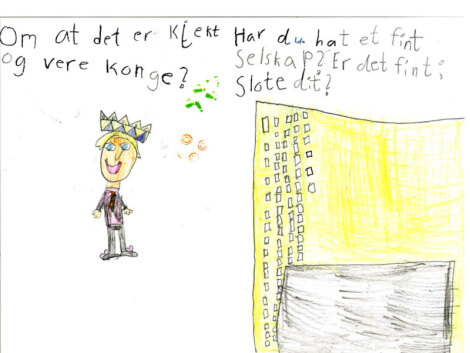 Om at det er Klekt
og vere konge?
Har du hat et fint
Selskap? Er det fint i
Slote dit?